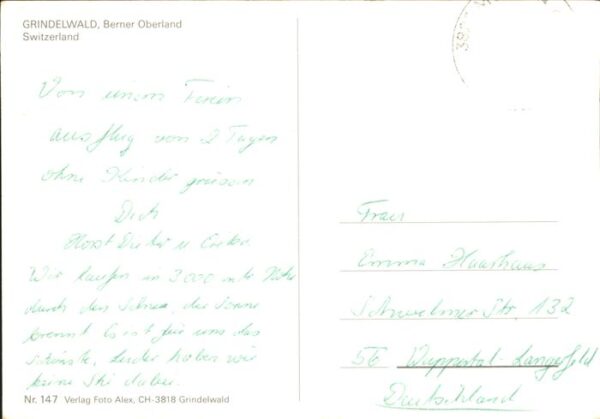 GRINDELWALD, Berner Oberland
Switzerland
Von einem Ferien
ausflug von 2 Tagen
ohne Kinder grüssen
Dich
Horst Dieter u
Wir laufen in 3000 mtr Höhe
durch den Schnee, die Sonne
brennt Es ist für uns das
Schönste, leider haben wir
keine Ski dabei.
Nr. 147 Verlag Foto Alex, CH-3818 Grindelwald
Frau
Emma Haushaus
Schwelmer Str. 132
56 Wuppertal-Langerfeld
Deutschland